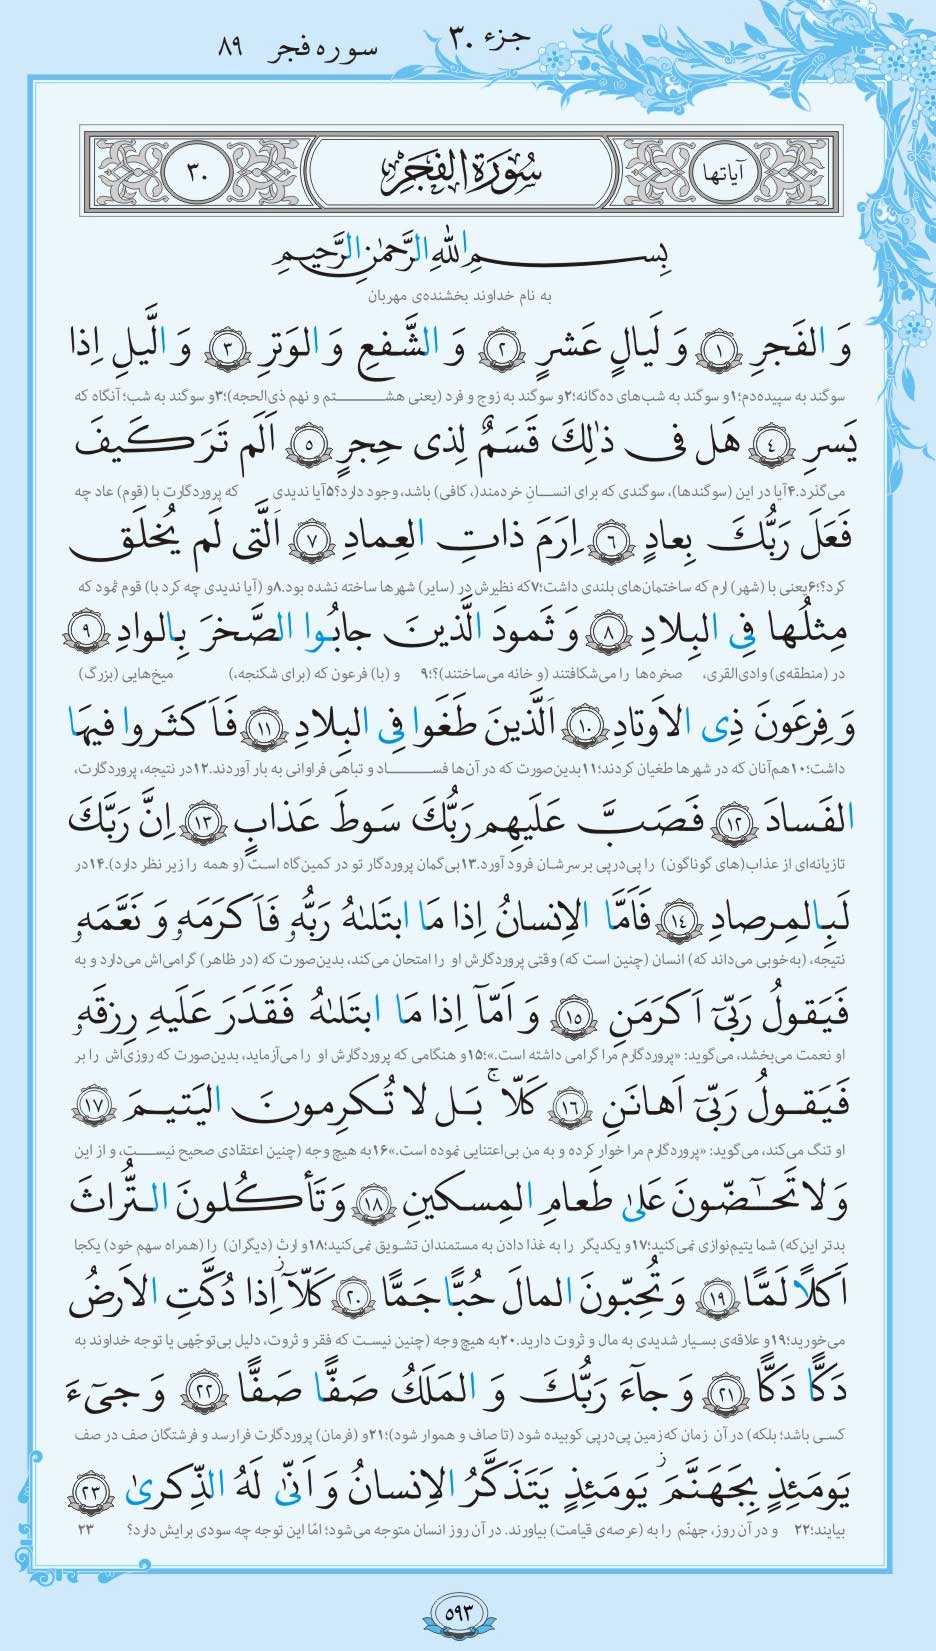 جزء ۳۰
سوره فجر ۸۹
آیاتها
سُورَةُ الفَجرِ
۳۰
بِسمِ اللّٰهِ الرَّحمٰنِ الرَّحیمِ
به نام خداوند بخشنده‌ی مهربان
وَ الفَجرِ ﴿۱﴾ وَ لَیالٍ عَشرٍ ﴿۲﴾ وَ الشَّفعِ وَ الوَترِ ﴿۳﴾ وَ الَّیلِ اِذا
سوگند به سپیده‌دم؛۱و سوگند به شب‌های ده‌گانه؛۲و سوگند به زوج و فرد (یعنی هشتم و نهم ذی‌الحجه)؛۳و سوگند به شب؛ آنگاه که
یَسرِ ﴿۴﴾ هَل فی ذٰلِکَ قَسَمٌ لِذی حِجرٍ ﴿۵﴾ اَلَم تَرَ کَیفَ
می‌گذرد.۴آیا در این (سوگندها)، سوگندی که برای انسانِ خردمند(، کافی) باشد، وجود دارد؟۵آیا ندیدی که پروردگارت با (قوم) عاد چه
فَعَلَ رَبُّکَ بِعادٍ ﴿۶﴾ اِرَمَ ذاتِ العِمادِ ﴿۷﴾ اَلَّتی لَم یُخلَق
کرد؟؛۶یعنی با (شهر) ارم که ساختمان‌های بلندی داشت؛۷که نظیرش در (سایر) شهرها ساخته نشده بود.۸و (آیا ندیدی چه کرد با) قوم ثمود که
مِثلُها فِی البِلادِ ﴿۸﴾ وَ ثَمودَ الَّذینَ جابُوا الصَّخرَ بِالوادِ ﴿۹﴾
در (منطقه‌ی) وادی‌القری، صخره‌ها را می‌شکافتند (و خانه می‌ساختند)؟؛۹ و (با) فرعون که (برای شکنجه،) میخ‌هایی (بزرگ)
وَ فِرعَونَ ذِی الاَوتادِ ﴿۱۰﴾ اَلَّذینَ طَغَوا فِی البِلادِ ﴿۱۱﴾ فَاَکثَروا فیهَا
داشت؛۱۰هم‌آنان که در شهرها طغیان کردند؛۱۱بدین‌صورت که در آن‌ها فساد و تباهی فراوانی به بار آوردند.۱۲در نتیجه، پروردگارت،
الفَسادَ ﴿۱۲﴾ فَصَبَّ عَلَیهِم رَبُّکَ سَوطَ عَذابٍ ﴿۱۳﴾ اِنَّ رَبَّکَ
تازیانه‌ای از عذاب(های گوناگون) را پی‌درپی بر سرشان فرود آورد.۱۳بی‌گمان پروردگار تو در کمین‌گاه است (و همه را زیر نظر دارد).۱۴در
لَبِالمِرصادِ ﴿۱۴﴾ فَاَمَّا الاِنسانُ اِذا مَا ابتَلىٰهُ رَبُّهٗ فَاَکرَمَهٗ وَ نَعَّمَهٗ
نتیجه، (به‌خوبی می‌داند که) انسان (چنین است که) وقتی پروردگارش او را امتحان می‌کند، بدین‌صورت که (در ظاهر) گرامی‌اش می‌دارد و به
فَیَقولُ رَبّیٓ اَکرَمَنِ ﴿۱۵﴾ وَ اَمّآ اِذا مَا ابتَلىٰهُ فَقَدَرَ عَلَیهِ رِزقَهٗ
او نعمت می‌بخشد، می‌گوید: «پروردگارم مرا گرامی داشته است.»؛۱۵و هنگامی که پروردگارش او را می‌آزماید، بدین‌صورت که روزی‌اش را بر
فَیَقولُ رَبّیٓ اَهانَنِ ﴿۱۶﴾ کَلّا ۚ بَل لا تُکرِمونَ الیَتیمَ ﴿۱۷﴾
او تنگ می‌کند، می‌گوید: «پروردگارم مرا خوار کرده و به من بی‌اعتنایی نموده است.»۱۶به هیچ وجه (چنین اعتقادی صحیح نیست، و از این
وَ لا تَحٰٓضّونَ عَلیٰ طَعامِ المِسکینِ ﴿۱۸﴾ وَ تَأکُلونَ التُّراثَ
بدتر این‌که) شما یتیم‌نوازی نمی‌کنید؛۱۷و یکدیگر را به غذا دادن به مستمندان تشویق نمی‌کنید؛۱۸و ارث (دیگران) را (همراه سهم خود) یکجا
اَکلًا لَمًّا ﴿۱۹﴾ وَ تُحِبّونَ المالَ حُبًّا جَمًّا ﴿۲۰﴾ کَلّآ ۖ اِذا دُکَّتِ الاَرضُ
می‌خورید؛۱۹و علاقه‌ی بسیار شدیدی به مال و ثروت دارید.۲۰به هیچ وجه (چنین نیست که فقر و ثروت، دلیل بی‌توجّهی یا توجه خداوند به
دَکًّا دَکًّا ﴿۲۱﴾ وَ جآءَ رَبُّکَ وَ المَلَکُ صَفًّا صَفًّا ﴿۲۲﴾ وَ جیٓءَ
کسی باشد؛ بلکه) در آن زمان که زمین پی‌درپی کوبیده شود (تا صاف و هموار شود)؛۲۱و (فرمان) پروردگارت فرارسد و فرشتگان صف در صف
یَومَئِذٍ بِجَهَنَّمَ ۚ یَومَئِذٍ یَتَذَکَّرُ الاِنسانُ وَ اَنّیٰ لَهُ الذِّکریٰ ﴿۲۳﴾
بیایند؛۲۲ و در آن روز، جهنّم را به (عرصه‌ی قیامت) بیاورند. در آن روز انسان متوجه می‌شود؛ امّا این توجه چه سودی برایش دارد؟ ۲۳
۵۹۳